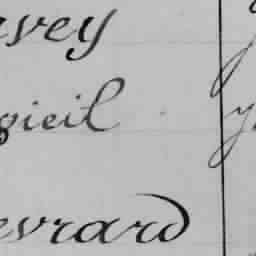 avey
gieil
evrard